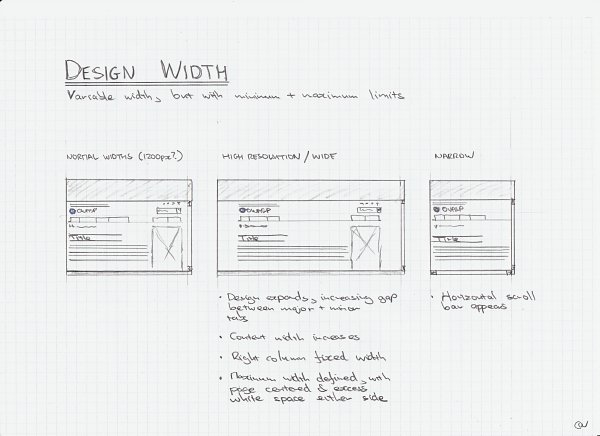 DESIGN WIDTH
Variable width, but with minimum + maximum limits
NORMAL WIDTHS (1200px?)
HIGH RESOLUTION / WIDE
NARROW
OWASP
Title
OWASP
Title
OWASP
Title
• Design expands, increasing gap
between major + minor
tabs
• Content width increases
• Right column fixed width
• Maximum width defined, with
page centered & excess
white space either side
• Horizontal scroll
bar appears